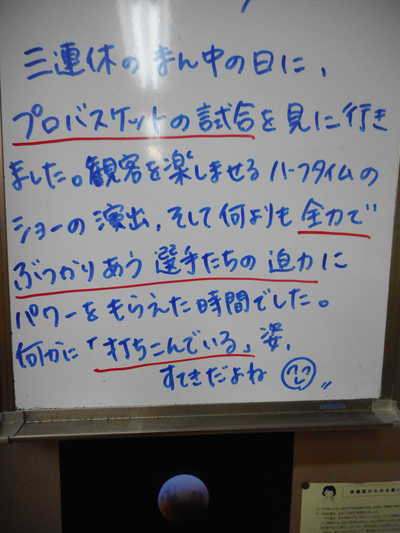 三連休のまん中の日に、
プロバスケットの試合を見に行き
ました。観客を楽しませるハーフタイムの
ショーの演出、そして何よりも全力で
ぶつかりあう選手たちの迫力に
パワーをもらえた時間でした。
何かに「打ちこんでいる」姿、
すてきだよね